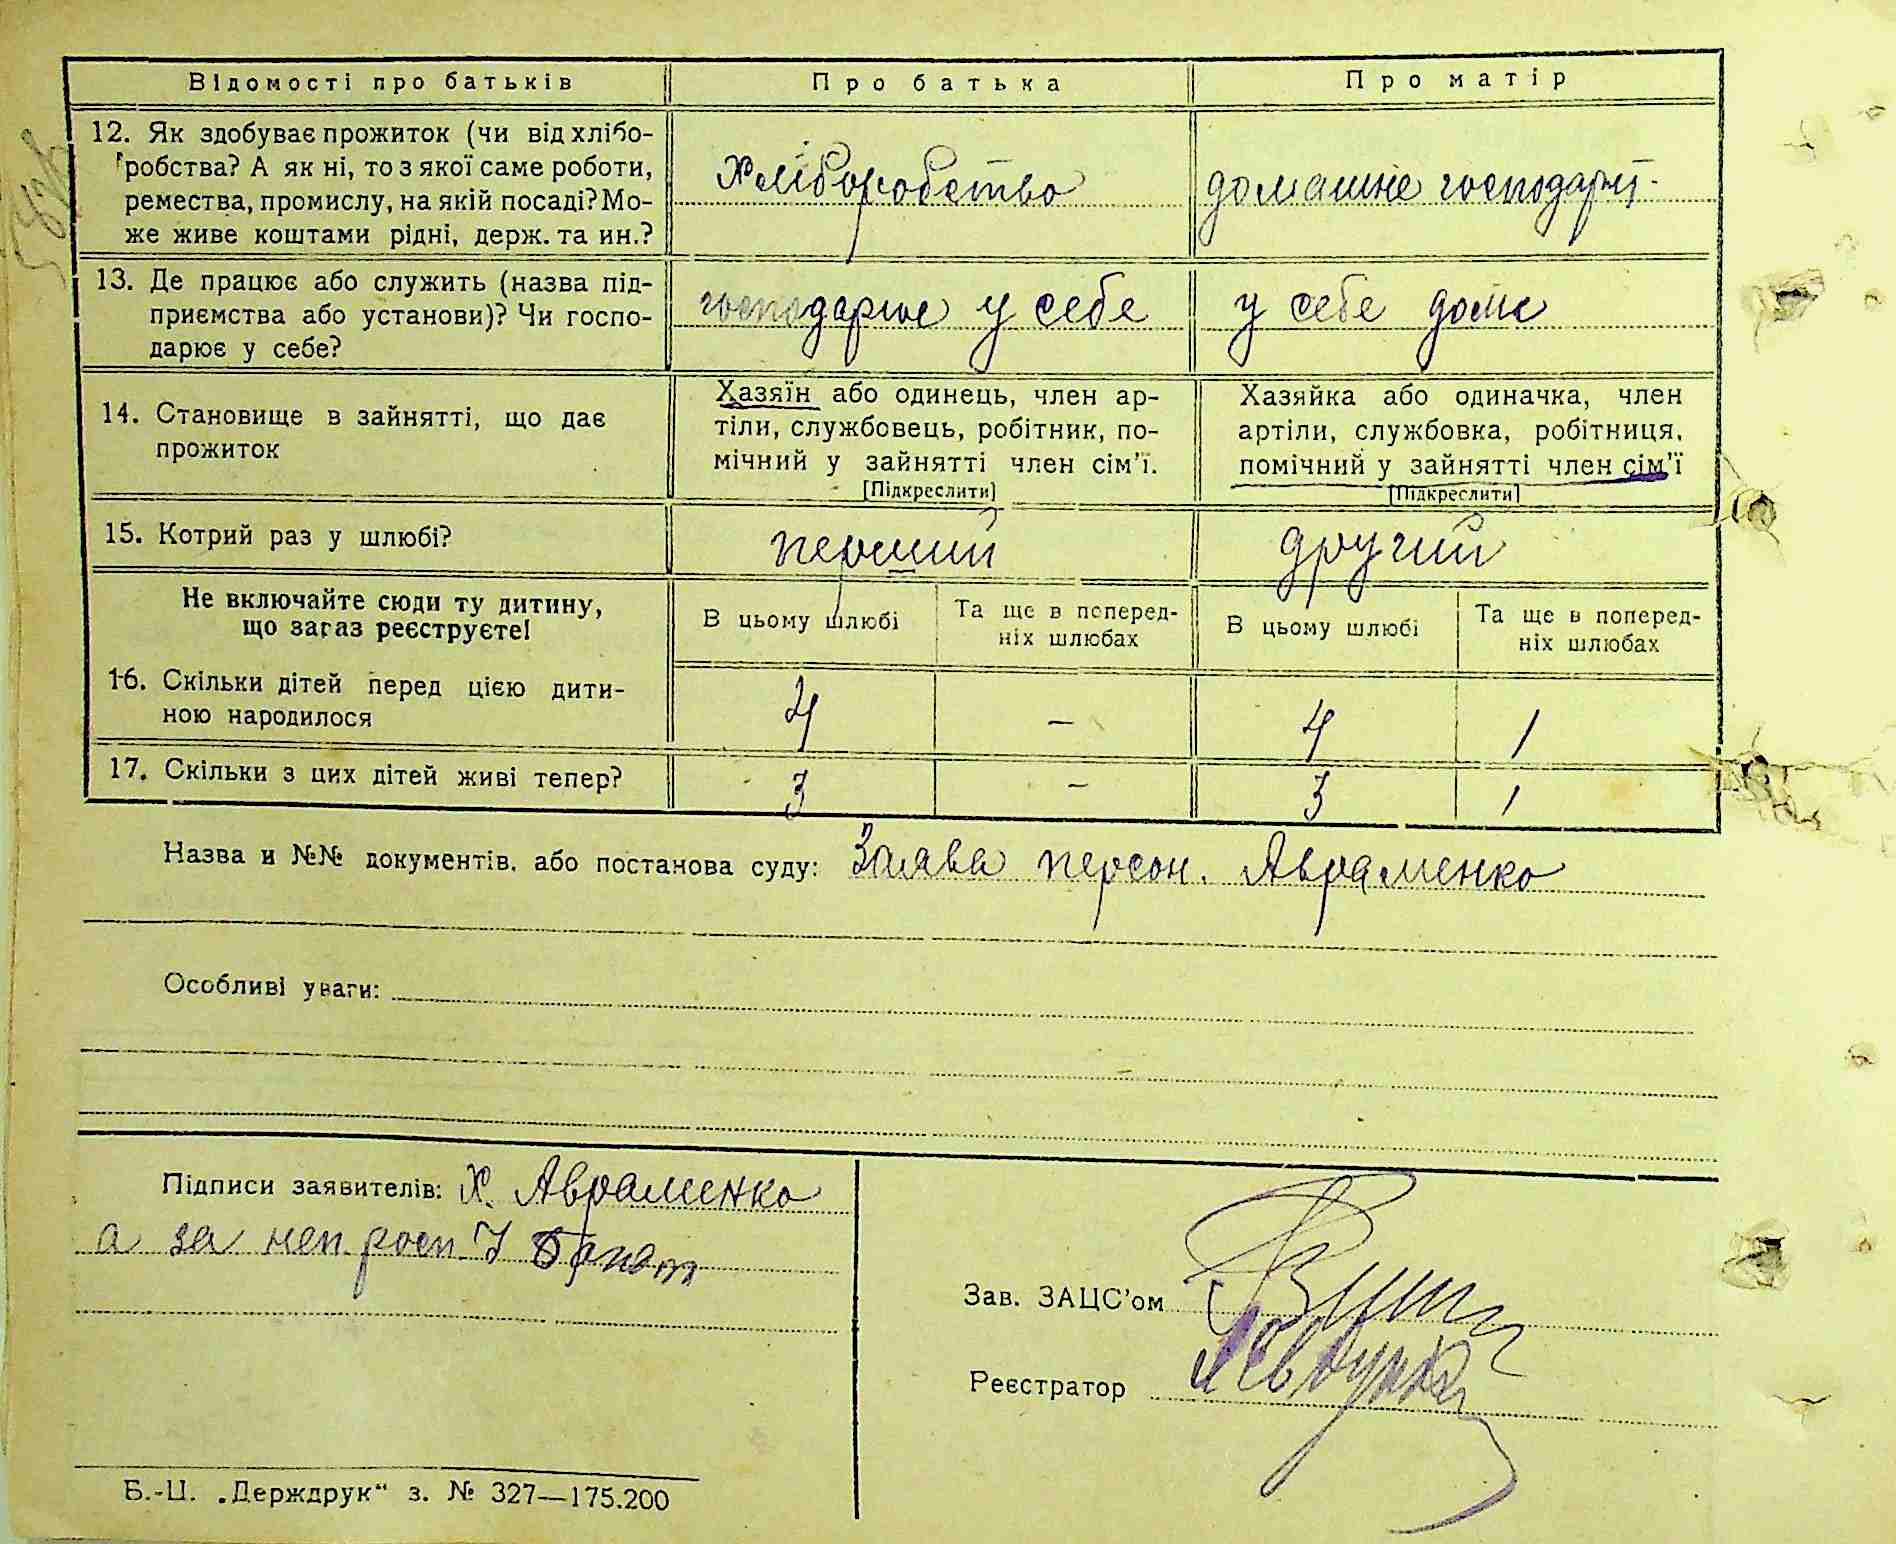 Відомості про батьків
Про батька
Про матір
12. Як здобуває прожиток (чи від хлібо-
робства? А як ні, то з якої саме роботи,
ремества, промислу, на якій посаді? Мо-
же живе коштами рідні, держ. та ин.?
Хліборобство
домашне господарст.
13. Де працює або служить (назва під-
приємства або установи)? Чи госпо-
дарює у себе?
господарює у себе
у себе дома
14. Становище в зайнятті, що дає
прожиток
Хазяїн або одинець, член ар-
тіли, службовець, робітник, по-
мічний у зайнятті член сім'ї.
[Підкреслити]
Хазяйка або одиначка, член
артіли, службовка, робітниця,
помічний у зайнятті член сім'ї
[Підкреслити]
15. Котрий раз у шлюбі?
перший
другий
Не включайте сюди ту дитину,
що зараз реєструєте!
В цьому шлюбі
Та ще в поперед-
ніх шлюбах
В цьому шлюбі
Та ще в поперед-
ніх шлюбах
16. Скільки дітей перед цією дити-
ною народилося
4
-
4
1
17. Скільки з цих дітей живі тепер?
3
-
3
1
Назва и №№ документів, або постанова суду: Заява персон. Авраменко
Особливі уваги:
Підписи заявителів: Х. Авраменко
а за неп. росп.
Зав. ЗАЦС'ом
Реєстратор
Б.-Ц. „Держдрук“ з. № 327—175.200